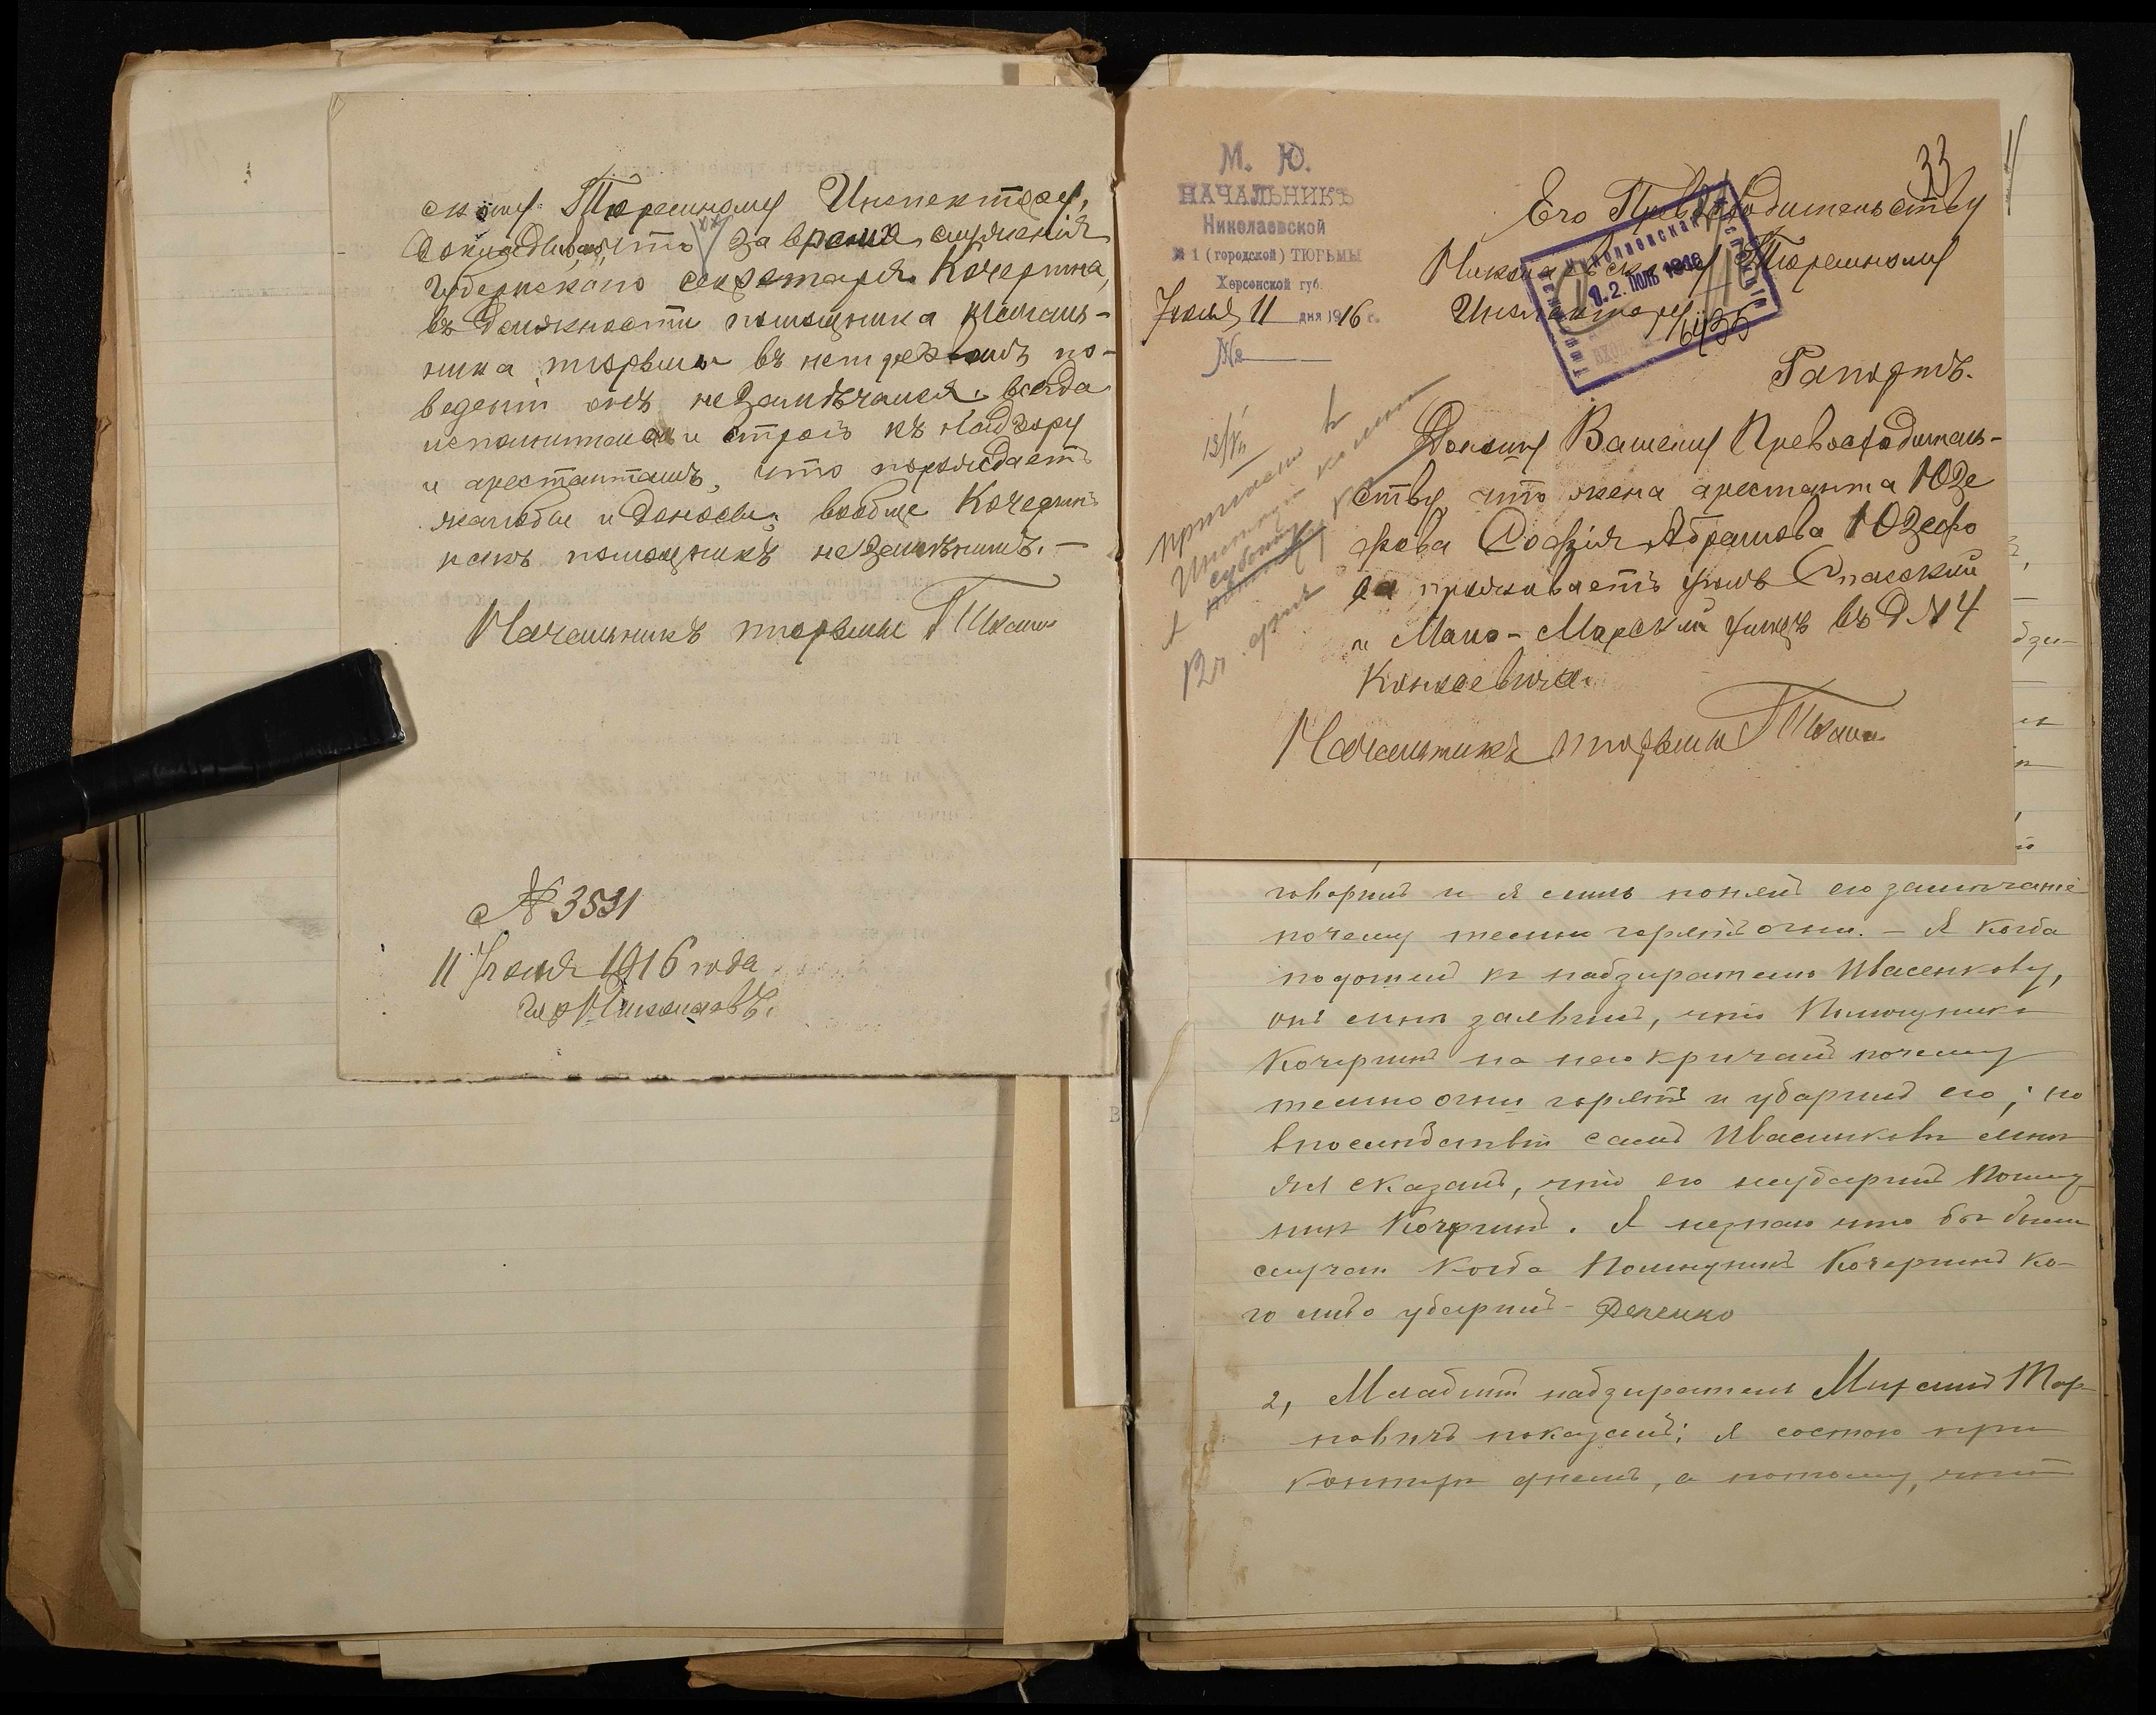 скому Тюремному Инспектору,
докладывая, что за время служенія
Губернскаго секретаря Кочерина,
въ должности помощника Началь-
ника тюрьмы въ нетрезвомъ по-
веденіи онъ незамѣчался, всегда
исполнителенъ и строгъ къ надзору
и арестантамъ, что порождаетъ
жалобы и доносы; вообще Кочеринъ
какъ помощникъ незамѣнимъ. —
Начальникъ тюрьмы
№ 3531
11 Іюля 1916 года
гор Николаевъ.
33
11
М. Ю.
НАЧАЛЬНИКЪ
Николаевской
№ 1 (городской) ТЮРЬМЫ
Херсонской губ.
Іюля 11 дня 1916 г.
№
Его Превосходительству
Николаевскому Тюремному
Инспектору
12 ІЮЛЬ 1916
6435
Рапортъ.
Доношу Вашему Превосходитель-
ству что жена арестанта Юзе
фова Софія Абрамова Юзефо
ва проживаетъ уголъ Спасской
и Мало-Морской улицъ въ д № 4
Начальникъ тюрьмы
говорилъ и я лишь понялъ его замѣчаніе
почему темно горятъ огни. — Я когда
подошелъ к надзирателю Ивасенкову,
онъ мнѣ заявилъ, что Помощникъ
Кочеринъ на него кричалъ почему
темно огни горятъ и ударилъ его; но
впослѣдствіи самъ Ивасенковъ мнѣ
же сказалъ, что его неударилъ Помощ
никъ Кочеринъ. Я незнаю что бы были
случаи когда Помощникъ Кочеринъ ко-
го либо ударилъ —
2, Младшій надзиратель
показалъ: я состою при
конторѣ днемъ, а потому, что